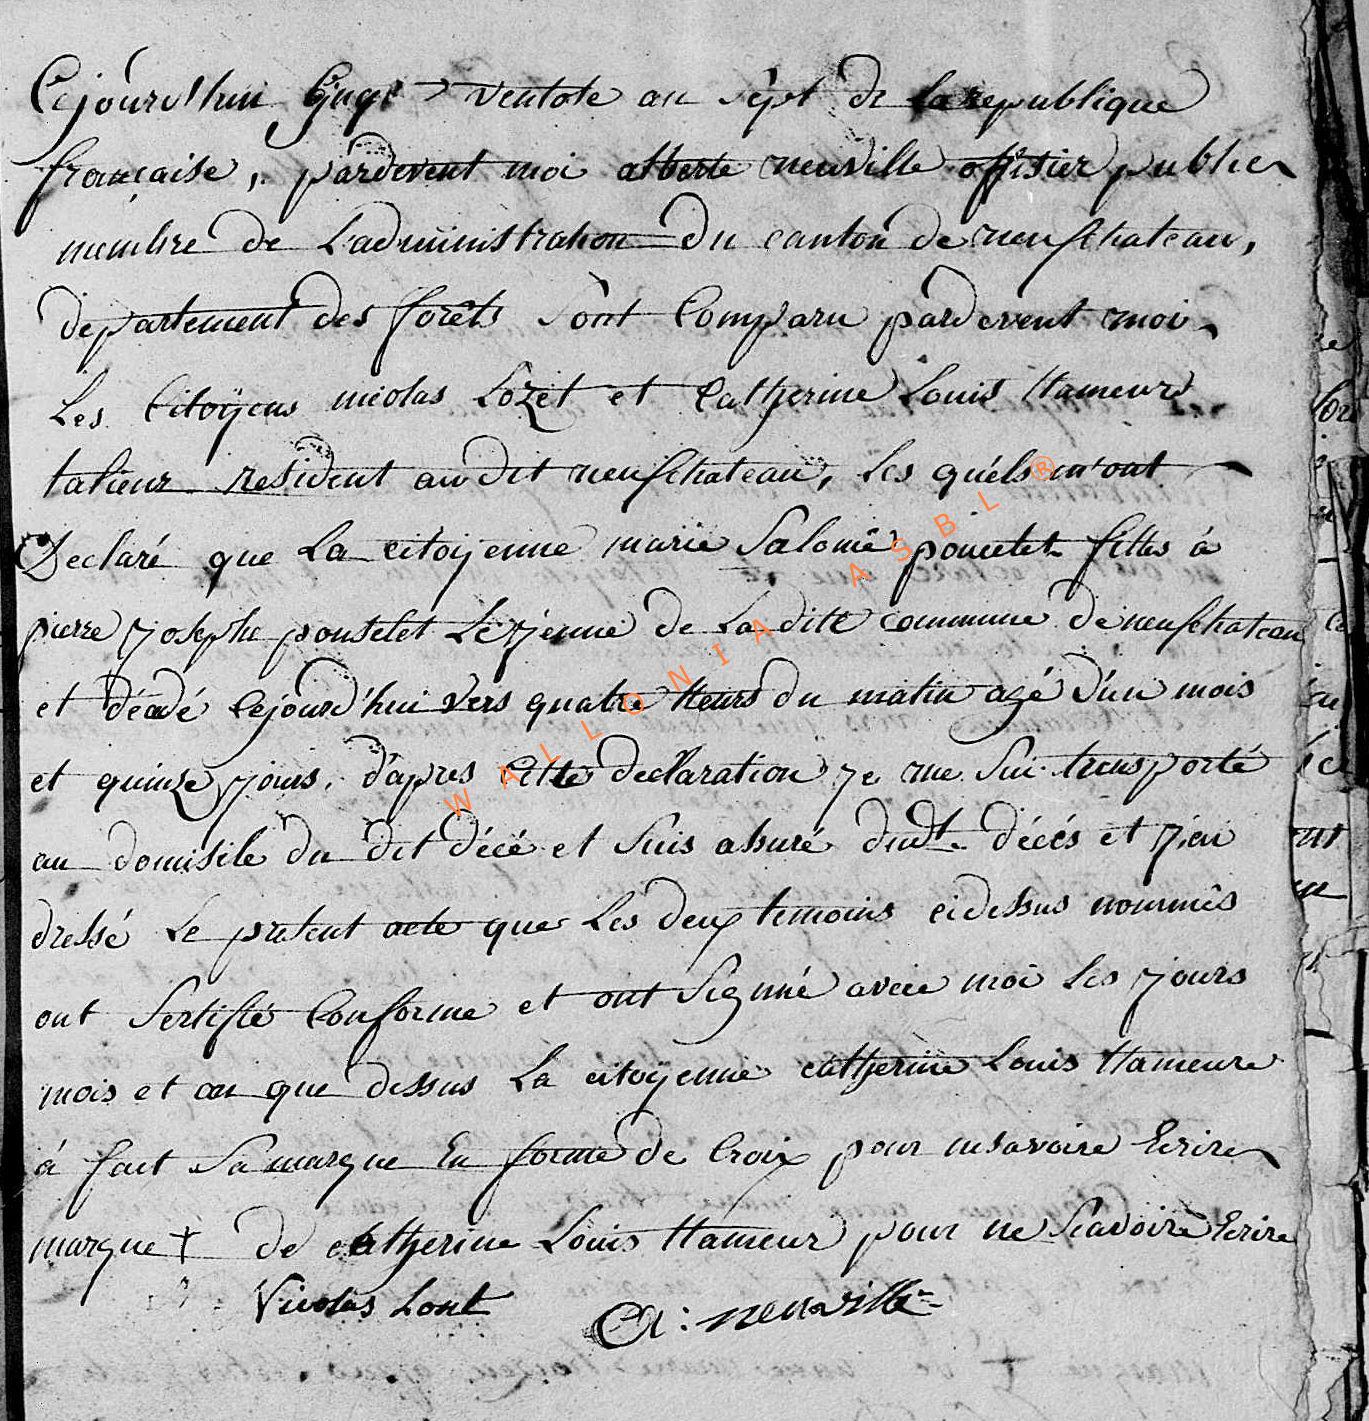 Cejourd'hui ventose an sept de la republique
française, pardevent moi alberte neuville offisier public
membre de L'administration du canton de neufchateau,
departement des forêts sont Comparu pardevent moi
Les Citoÿens nicolas Lozet et Catherine Louis Hameur
talieur resident au dit neufchateau, Les quéls m'ont
Declaré que La citoijenne marie Salomé poncelet filles à
pierre josephe ponselet Le jeune de La dite commune de neufchateau
et décédé Cejourd'hui vers quatre heurs du matin agé d'un mois
et quinze jours. d'apres Cette declaration je me sui transporté
au domisile du dit décé et suis assuré dudt. décés et j'en
dressé Le présent acte que Les deux temoins cidessus nommés
ont Sertifié Conforme et ont Signné avece moi Les jours
mois et an que dessus La citoÿenne catherine Louis Hameure
à fait sa marque En forme de Croix pour nesavoire Ecrire
marque + de catherine Louis Hameur pour ne Scavoire Ecrire
Nicolas A: neuville
WALLONIA ASBL ®